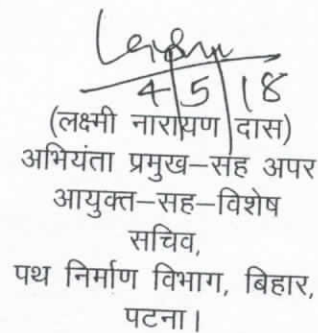 4/5/18
(लक्ष्मी नारायण दास)
अभियंता प्रमुख–सह अपर
आयुक्त–सह–विशेष
सचिव,
पथ निर्माण विभाग, बिहार,
पटना।